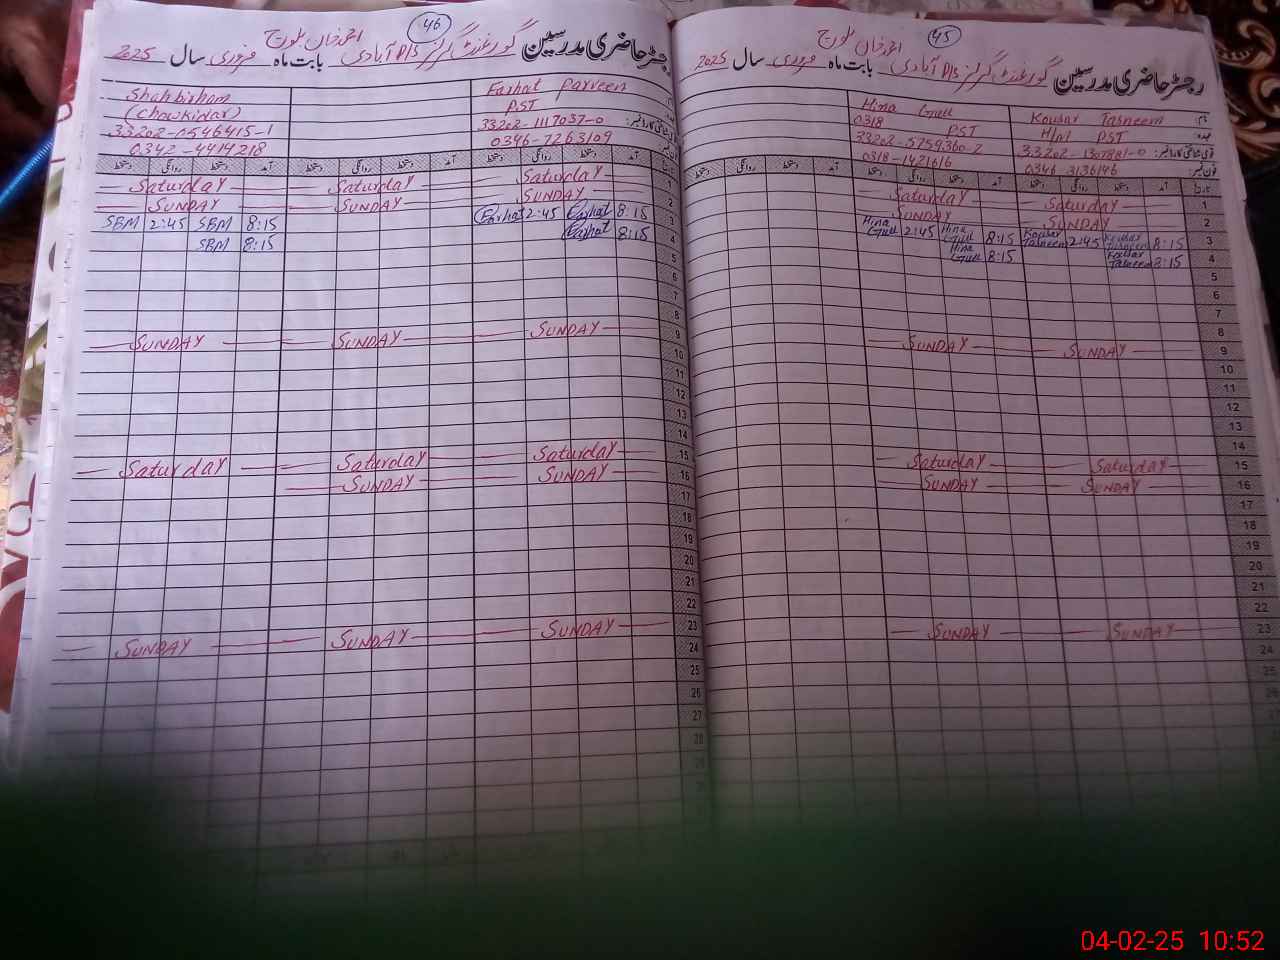 46
رجسٹر حاضری مدرسین گورنمنٹ گرلز P/S آبادی احمد خان بلوچ بابت ماہ فروری سال 2025
Shahbirham
(Chowkidar)
33202-0546415-1
0342-4414218
Farhat Parveen
PST
33202-1117037-0
0346-7263109
دستخط روانگی دستخط آمد دستخط روانگی دستخط آمد دستخط روانگی دستخط آمد تاریخ
Saturday Saturday Saturday 1
SUNDAY SUNDAY SUNDAY 2
SBM 2:45 SBM 8:15 Farhat 2:45 Farhat 8:15 3
SBM 8:15 Farhat 8:15 4
5
6
7
8
SUNDAY SUNDAY SUNDAY 9
10
11
12
13
14
Saturday Saturday Saturday 15
SUNDAY SUNDAY 16
17
18
19
20
21
22
SUNDAY SUNDAY SUNDAY 23
24
25
26
27
28
45
رجسٹر حاضری مدرسین گورنمنٹ گرلز P/S آبادی احمد خان بلوچ بابت ماہ فروری سال 2025
Hina Gull
0318 PST
33202-5759360-2
0318-1421616
نام: Kousar Tasneem
عہدہ: H/M PST
قومی شناختی کارڈ نمبر: 33202-1307881-0
فون نمبر: 0346 3136146
دستخط روانگی دستخط آمد دستخط روانگی دستخط آمد تاریخ
Saturday Saturday 1
SUNDAY SUNDAY 2
Hina Gull 2:45 Hina Gull 8:15 Kousar Tasneem 2:45 Kousar Tasneem 8:15 3
Hina Gull 8:15 Kousar Tasneem 8:15 4
5
6
7
8
SUNDAY SUNDAY 9
10
11
12
13
14
Saturday Saturday 15
SUNDAY SUNDAY 16
17
18
19
20
21
22
SUNDAY SUNDAY 23
24
25
04-02-25 10:52